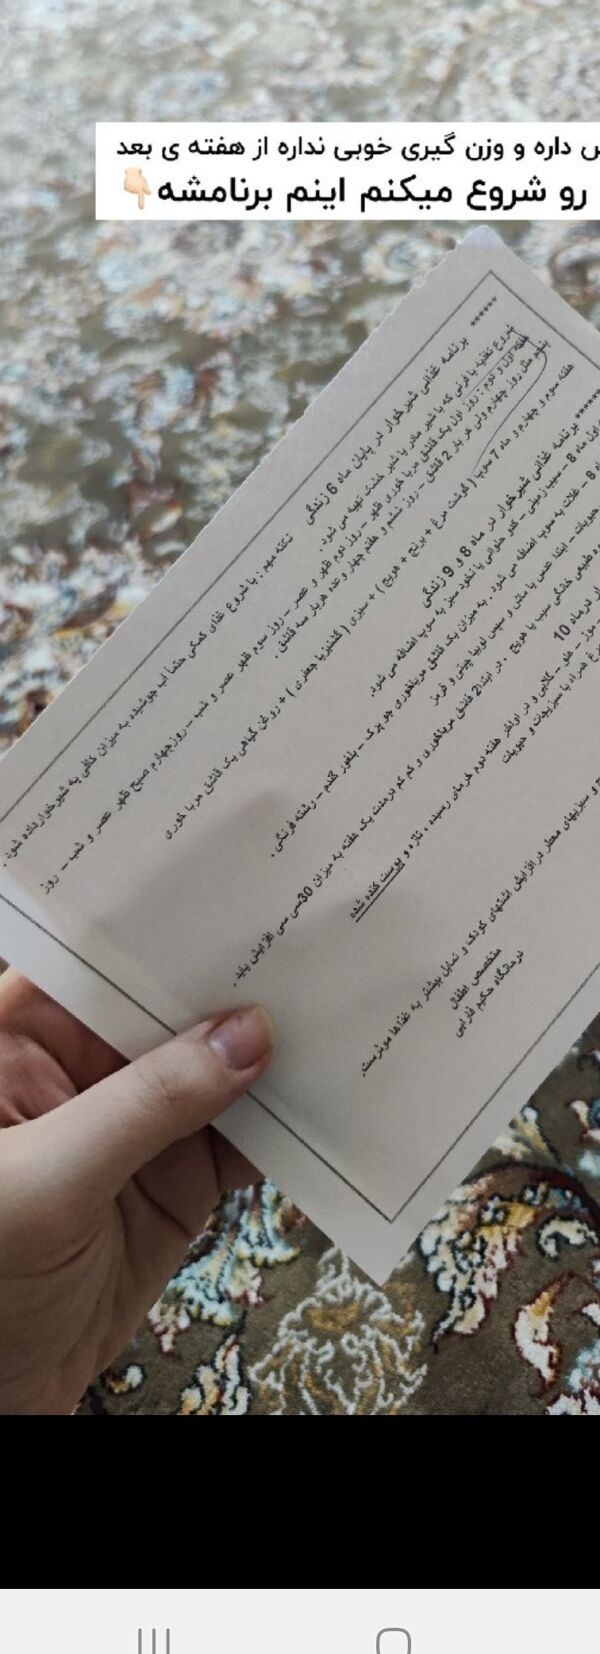 داره و وزن گیری خوبی نداره از هفته ی بعد
رو شروع میکنم اینم برنامشه👇🏻
******
برنامه غذائی شیرخوار در پایان ماه 6 زندگی
نکته مهم : با شروع غذای کمکی حتماً آب جوشیده به میزان کافی به شیرخوار داده شود .
شروع تغذیه با فرنی که با شیر مادر یا شیر خشک تهیه می شود .
هفته اول و دوم : روز اول یک قاشق مربا خوری ظهر – روز دوم ظهر و عصر – روز سوم ظهر عصر و شب – روز چهارم صبح ظهر عصر و شب – روز
پنجم مثل روز چهارم ولی هر بار 2 قاشق – روز ششم و هفتم چهار وعده هربار سه قاشق .
هفته سوم و چهارم و ماه 7 سوپ ( گوشت مرغ + برنج + هویج ) + سبزی ( گشنیز یا جعفری ) + روغن گیاهی یک قاشق مربا خوری
******
برنامه غذائی شیرخوار در ماه 8 و 9 زندگی
اول ماه 8 – سیب زمینی – کدو حلوائی یا نخود سبز به سوپ اضافه می شود.
8 – غلات به سوپ اضافه می شود . به میزان یک قاشق مرباخوری جو پرک – بلغور گندم – رشته فرنگی .
حبوبات – ابتدا عدس یا ماش و سپس لوبیا چیتی و قرمز
طبیعی خانگی سیب یا هویج . در ابتدا 2 قاشق مرباخوری و کم کم درمدت یک هفته به میزان 30سی سی افزایش یابد .
در ماه 10
موز – هلو – گلابی و در اواخر هفته دوم خرمای رسیده ، تازه و پوست کنده شده
همراه با سبزیجات و حبوبات
و سبزیهای معطر در افزایش اشتهای کودک و تمایل بیشتر به غذاها موثرست.
متخصص اطفال
درمانگاه حکیم فارابی